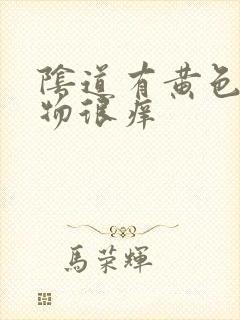 陰道有黄色
物很痒
馬荣輝